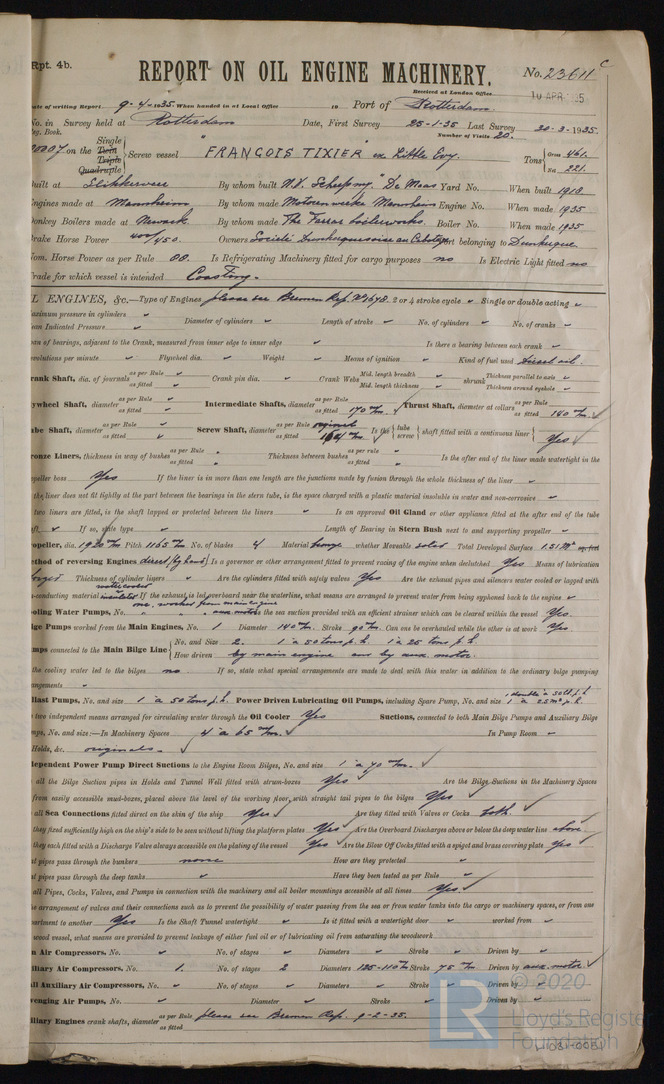 Rpt. 4b.
REPORT ON OIL ENGINE MACHINERY.
No. 23611 c
Received at London Office
10 APR
ate of writing Report 9-4-1935. When handed in at Local Office 19 Port of Rotterdam
No. in Survey held at Rotterdam Date, First Survey 25-1-35 Last Survey 20-3-1935.
Reg. Book. Number of Visits 20.
on the Single Twin Triple Quadruple Screw vessel "FRANÇOIS TIXIER" ex Little Evy. Tons Gross 461. Net 221.
Built at Slikkerveer By whom built N.V. Scheepsbg. "De Maas" Yard No. When built 1918
Engines made at Mannheim By whom made Motorenwerke Mannheim Engine No. When made 1935
Donkey Boilers made at Newark By whom made The Farrar boilerworks. Boiler No. When made 1935
Brake Horse Power 400/450 Owners Societé Dunkerquoise au Cabotage Port belonging to Dunkerque
Nom. Horse Power as per Rule 88. Is Refrigerating Machinery fitted for cargo purposes no Is Electric Light fitted no
Trade for which vessel is intended Coasting.
L ENGINES, &c.—Type of Engines please see Bremen Rep. 2 or 4 stroke cycle Single or double acting
aximum pressure in cylinders Diameter of cylinders Length of stroke No. of cylinders No. of cranks
an Indicated Pressure
an of bearings, adjacent to the Crank, measured from inner edge to inner edge Is there a bearing between each crank
evolutions per minute Flywheel dia. Weight Means of ignition Kind of fuel used Diesel oil.
rank Shaft, dia. of journals as per Rule as fitted Crank pin dia. Crank Webs Mid. length breadth Mid. length thickness shrunk Thickness parallel to axis Thickness around eyehole
ywheel Shaft, diameter as per Rule as fitted Intermediate Shafts, diameter as per Rule as fitted 170 m/m. Thrust Shaft, diameter at collars as per Rule as fitted 180 m/m.
be Shaft, diameter as per Rule as fitted Screw Shaft, diameter as per Rule as fitted Is the tube screw shaft fitted with a continuous liner Yes
ronze Liners, thickness in way of bushes as per Rule as fitted Thickness between bushes as per rule as fitted Is the after end of the liner made watertight in the
peller boss Yes If the liner is in more than one length are the junctions made by fusion through the whole thickness of the liner
the liner does not fit tightly at the part between the bearings in the stern tube, is the space charged with a plastic material insoluble in water and non-corrosive
two liners are fitted, is the shaft lapped or protected between the liners Is an approved Oil Gland or other appliance fitted at the after end of the tube
aft. If so, state type Length of Bearing in Stern Bush next to and supporting propeller
opeller, dia. 1920 m/m Pitch 1165 m/m. No. of blades 4 Material bronze whether Moveable solid Total Developed Surface 1.51 M²
ethod of reversing Engines direct (by hand) Is a governor or other arrangement fitted to prevent racing of the engine when declutched Yes Means of lubrication
forced Thickness of cylinder liners Are the cylinders fitted with safety valves Yes Are the exhaust pipes and silencers water cooled or lagged with
-conducting material watercooled If the exhaust is led overboard near the waterline, what means are arranged to prevent water from being syphoned back to the engine
ooling Water Pumps, No. one, worked from main engine " " aux. motor Is the sea suction provided with an efficient strainer which can be cleared within the vessel Yes.
lge Pumps worked from the Main Engines, No. 1 Diameter 140 m/m. Stroke 90 m/m. Can one be overhauled while the other is at work Yes
umps connected to the Main Bilge Line No. and Size 2. 1 a 50 tons p.h. 1 a 25 tons p.h.
How driven by main engine and by aux. motor.
the cooling water led to the bilges no If so, state what special arrangements are made to deal with this water in addition to the ordinary bilge pumping
angements
llast Pumps, No. and size 1 a 50 tons p.h. Power Driven Lubricating Oil Pumps, including Spare Pump, No. and size
two independent means arranged for circulating water through the Oil Cooler Yes Suctions, connected to both Main Bilge Pumps and Auxiliary Bilge
mps, No. and size:—In Machinery Spaces 4 a 65 m/m. In Pump Room
Holds, &c. originals.
dependent Power Pump Direct Suctions to the Engine Room Bilges, No. and size 1 a 70 m/m.
all the Bilge Suction pipes in Holds and Tunnel Well fitted with strum-boxes Yes Are the Bilge Suctions in the Machinery Spaces
from easily accessible mud-boxes, placed above the level of the working floor, with straight tail pipes to the bilges Yes
all Sea Connections fitted direct on the skin of the ship Yes Are they fitted with Valves or Cocks both.
they fixed sufficiently high on the ship's side to be seen without lifting the platform plates Yes Are the Overboard Discharges above or below the deep water line above
they each fitted with a Discharge Valve always accessible on the plating of the vessel Yes Are the Blow Off Cocks fitted with a spigot and brass covering plate Yes
at pipes pass through the bunkers none How are they protected
at pipes pass through the deep tanks Have they been tested as per Rule
all Pipes, Cocks, Valves, and Pumps in connection with the machinery and all boiler mountings accessible at all times Yes
he arrangement of valves and their connections such as to prevent the possibility of water passing from the sea or from water tanks into the cargo or machinery spaces, or from one
partment to another Yes Is the Shaft Tunnel watertight Is it fitted with a watertight door worked from
wood vessel, what means are provided to prevent leakage of either fuel oil or of lubricating oil from saturating the woodwork
n Air Compressors, No. No. of stages Diameters Stroke Driven by
iliary Air Compressors, No. 1. No. of stages 2 Diameters 125-110 m/m Stroke 75 m/m. Driven by aux. motor
all Auxiliary Air Compressors, No. No. of stages Diameters Stroke Driven by
venging Air Pumps, No. Diameter Stroke Driven by
iliary Engines crank shafts, diameter as per Rule as fitted please see Bremen Rep. 9-2-35.
LR © 2020
Lloyd's Register
Foundation